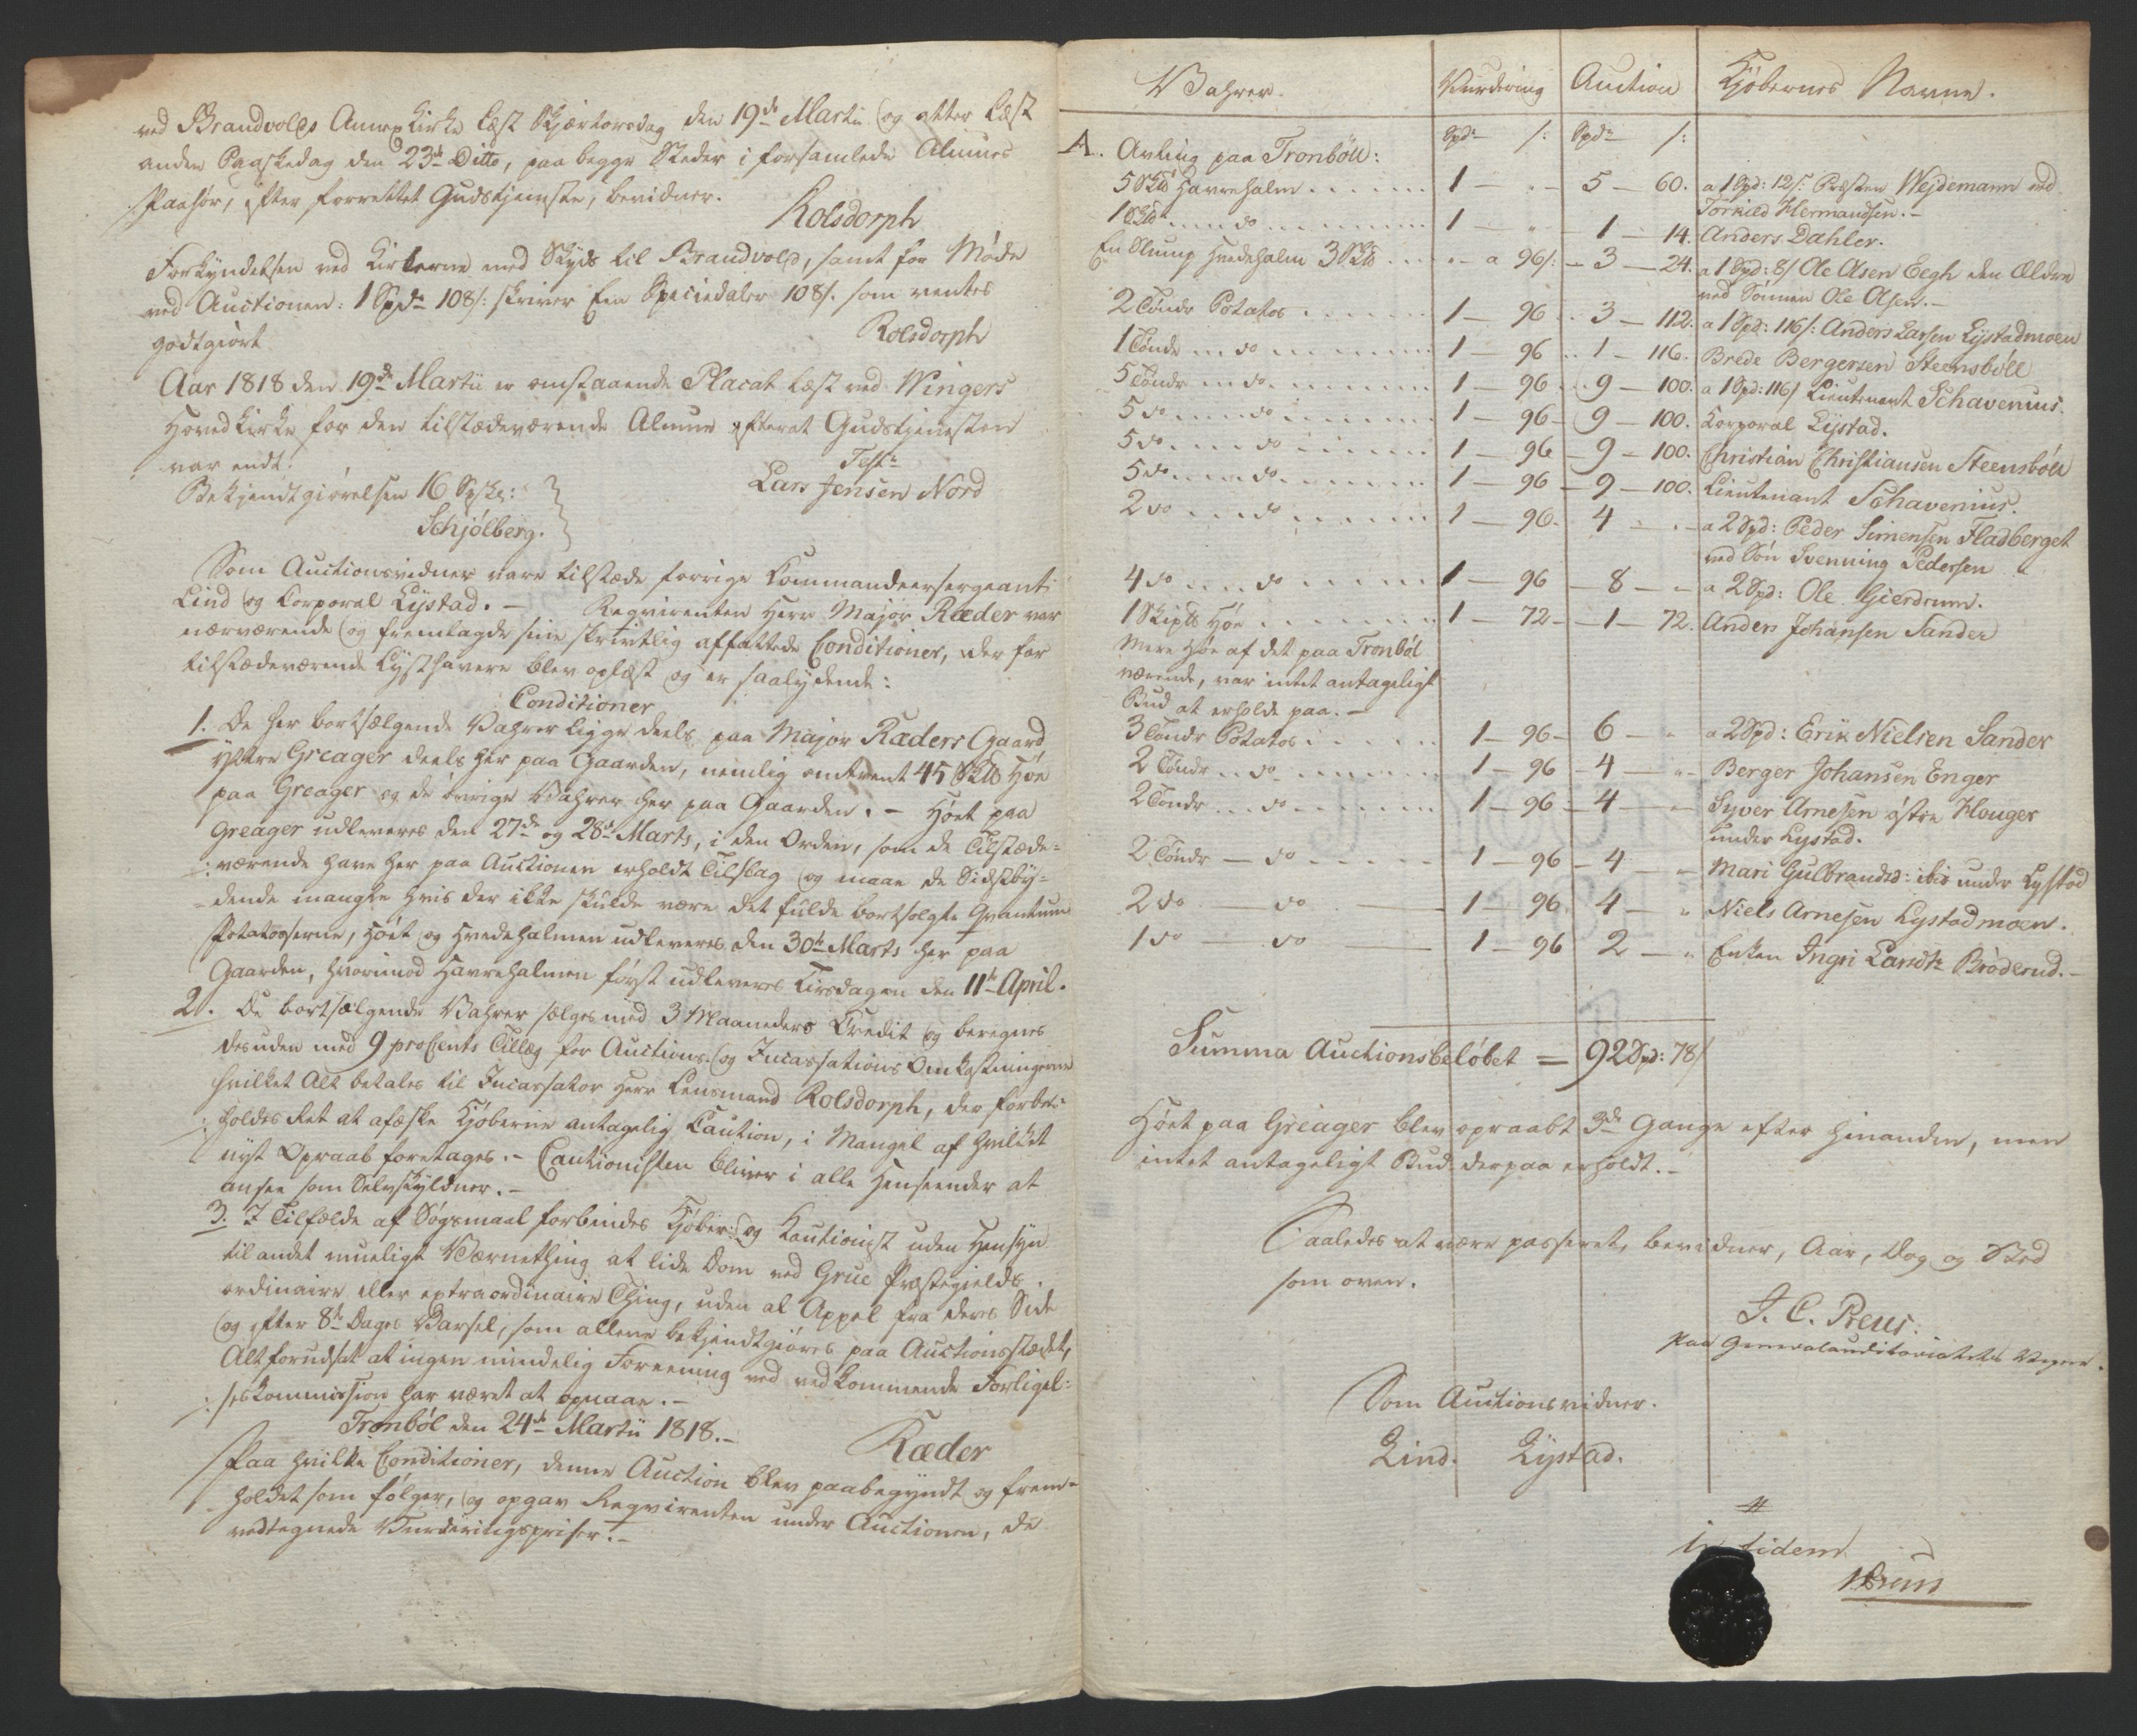 ved Brandvolds Annexkirke læst Skjærtorsdag den 19de Martii og atter læst
anden Paaskedag den 23de Ditto, paa begge Steder i forsamlede Almues
Paahør, efter forrettet Gudstjeneste, bevidner.
Rolsdorph
Forkyndelsen ved Kirkerne med Skyds til Brandvold, samt for Møde
ved Auctionen: 1 Spd 108 s: skriver Een Speciedaler 108 s. som ventes
godtgiort
Rolsdorph
Aar 1818 den 19de Martii er omstaaende Placat læst ved Wingers
Hovedkirke for den tilstædeværende Almue efterat Gudstjenesten
var endt.
Test:
Bekjendtgiørelsen 16 Spsk:
Lars Jensen Nord
Schjølberg.
Som Auctionsvidner vare tilstæde forrige Commandeersergeant
Lind og Corporal Lystad. – Reqvirenten Herr Major Ræder var
nærværende og fremlagde sine skrivtlig affattede Conditioner, der for
tilstædeværende Lysthavere blev oplæst og er saalydende:
Conditioner
1. De her bortsælgende Vahrer ligge deels paa Major Ræders Gaard
ÿttre Greager deels her paa Gaarden, nemlig omtrent 45 Sk℔ Høe
paa Greager og de øvrige Vahrer her paa Gaarden. – Høet paa
Greager udleveres den 27de og 28de Marts, i den Orden, som de Tilstæde-
:værende have her paa Auctionen erholdt Tilslag og maae de Sidstby-
-dende mangle hvis der ikke skulde være det fulde bortsolgte Qvantum
Potatoserne, Høet og Hvedehalmen udleveres den 30te Marts her paa
Gaarden, hvorimod Havrehalmen først udleveres Tirsdagen den 11te April.
2. De bortsælgende Vahrer sælges med 3 Maaneders Credit og beregnes
desuden med 9 proCents Tillæg for Auctions- og Incassations Omkostningerne
hvilket Alt betales til Incassator Herr Lensmand Rolsdorph, der forbe-
:holdes Ret at afæske Kjøberne antagelig Caution, i Mangel af hvilket
nyt Opraab foretages. – Cautionisten bliver i alle Henseender at
ansee som Selvskyldner. –
3. I Tilfælde af Søgsmaal forbindes Kjøber: og Kautionist uden Hensyn
til andet mueligt Værnething at lide Dom ved Grue Præstegields
ordinaire eller extraordinaire Thing, uden al Appel fra deres Side
og efter 8te Dages Varsel, som allene bekjendtgiøres paa Auctionsstædet,
Alt forudsat at ingen mindelig Foreening ved vedkommende Forligel-
:seskommission har været at opnaae. –
Tronbøl den 24de Martii 1818. –
Ræder
Paa hvilke Conditioner, denne Auction blev paabegyndt og frem-
-holdet som følger, og opgav Reqvirenten under Auctionen, de
vedtegnede Vurderingspriser. –
Vahrer. Vurdering Auction Kjøbernes Navne.
Spd s: Spd s:
A. Avling paa Tronbøll:
5 Sk℔ Havrehalm 1 – " – 5 – 60. a 1 Spd: 12 s: Præsten Wejdemann ved
Torkild Hermandsen. –
1 Sk℔ do 1 – " – 1 – 14. Anders Dahler.
En Slump Hvedehalm 3 Sk℔ " – a 96 s: – 3 – 24. a 1 Spd: 8 s Ole Olsen Eegh den Ældre
ved Sønnen Ole Olsen. –
2 Tønder Potatos 1 – 96 3 – 112. a 1 Spd: 116 s: Anders Larsen Lystadmoen
1 Tønde do 1 – 96 1 – 116. Brede Bergersen Steensbøll
5 Tønder do 1 – 96 9 – 100. a 1 Spd: 116 s Lieutenant Schavenius.
5 do do 1 – 96 – 9 – 100. Korporal Lystad.
5 do do 1 – 96 – 9 – 100. Christian Christiansen Steensbøll
5 do do 1 – 96 – 9 – 100. Lieutenant Schavenius.
2 do do 1 – 96 – 4 – " – a 2 Spd: Peder Simensen Fladberget
ved Søn Svenning Pedersen
4 do do 1 – 96 – 8 – " a 2 Spd: Ole Gierdrum.
1 Skip℔ Høe 1 – 72 – 1 – 72. Anders Johansen Sander
Mere Høe af det paa Tronbøl
værende, var intet antageligt
Bud at erholde paa. –
3 Tønder Potatos 1 – 96 – 6 – " a 2 Spd: Erik Nielsen Sander
2 Tønder do 1 – 96 – 4 – " Berger Johansen Enger
2 Tønder do 1 – 96 – 4 – " Syver Arnesen østre Houger
under Lystad.
2 Tønder – do 1 – 96 – 4 – " Mari Gulbrandsd: ibid under Lystad
2 do – do 1 – 96 4 – " Niels Arnesen Lystadmoen.
1 do – do 1 – 96 2 – " Enken Ingri Larsdtr Brøderud. –
Summa Auctionsbeløbet = 92 Spd: 78 s
Høet paa Greager blev opraabt 3de Gange efter hinanden, men
intet antageligt Bud derpaa erholdt. –
Saaledes at være passeret, bevidner, Aar, Dag og Sted
som oven.
J. C. Preus:
paa Generalauditoriatets Vegne.
Som Auctionsvidner.
Lind. Lystad.
in fidem
Preus